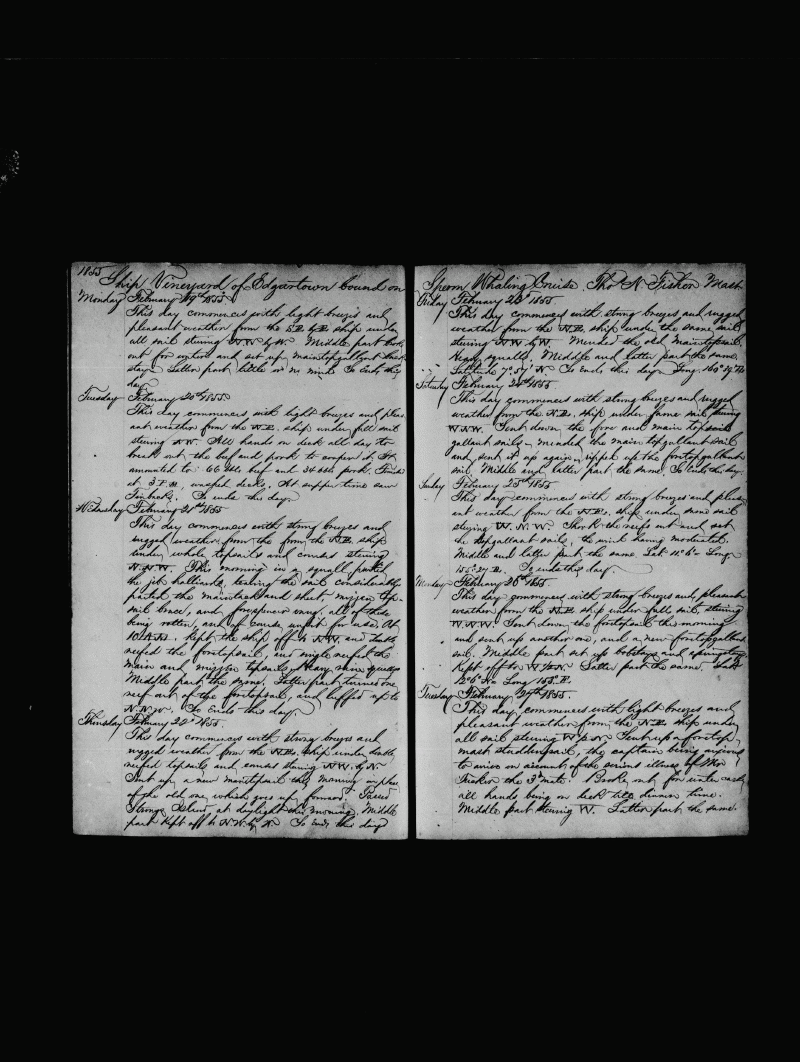 1855
Ship Vineyard of Edgartown bound on
Monday February 19th 1855
This day commences with light breezes and
pleasant weather from the S.E. by E. ship under
all sail steering N.W. by W. Middle part broke
out for water and set up maintopgallant back
stays. Latter part little or no wind. So Ends this
day
Tuesday February 20th 1855
This day commences with light breezes and pleas
ant weather from the N.E. ship under full sail
steering N.W. All hands on deck all day to
break out the beef and pork to cooper it. It
amounted to 66 bbls beef and 34 bbls pork.
at 3 P.M. washed decks. At supper time saw
Finbacks. So ends the day
Wednesday February 21st 1855
This day commences with strong breezes and
rugged weather from the from the N.E. ship
under whole topsails and courses steering
N.N.W. This morning in a squall parted
the jib halliards, tearing the sail considerably
parted the maintack and sheet, mizzen top-
sail brace, and all of these
being rotten, and of course unfit for use. At
10 A.M. kept the ship off to N.W. and double
reefed the foretopsail, and single reefed the
main and mizzen topsails. Heavy rain squalls
Middle part the same. Latter part turned one
reef out of the foretopsail, and luffed up to
N.N.W. So Ends this day.
Thursday February 22d 1855.
This day commences with strong breezes and
rugged weather from the N.E. ship under double
reefed topsails and courses steering N.W. by N.
Sent up a new maintopsail this morning in place
of the old one, which goes up forward. Passed
Strongs Island at daylight this morning. Middle
part kept off to N.W. by W. So Ends this day
Sperm Whaling Cruise. Thos N. Fisher Mast
Friday February 23d 1855
This day commences with strong breezes and rugged
weather from the N.E. ship under the same sail
steering N.W. by W. Mended the old maintopsail.
Heavy squalls. Middle and latter part the same.
Latitude 7° 51' N. So Ends this day. Long. 160° 27' E.
Saturday February 24th 1855
This day commences with strong breezes and rugged
weather from the N.E. ship under same sail steering
W.N.W. Sent down the fore and main topsail
gallant sails, mended the main topgallant sail
and sent it up again, ripped up the foretopgallant
sail. Middle and latter part the same. So Ends the day.
Sunday February 25th 1855
This day commences with strong breezes and pleas
ant weather from the N.E. ship under same sail
steering W.N.W. Shook the reefs out and set
the topgallant sails, the wind having moderated.
Middle and latter part the same. Lat. 11° 6' Long
155° 27 E. So ends this day.
Monday February 26th 1855.
This day commences with strong breezes and pleasant
weather from the N.E. ship under full sail, steering
W.N.W. Sent down the foretopsail the morning
and sent up another one, and a new foretopgallant
sail. Middle part set up bobstays and
Kept off to W by N. Latter part the same.
12° 6' N Long 153° E.
Tuesday February 27th 1855.
This day commences with light breezes and
pleasant weather from the N.E. ship under
all sail steering W by N. Sent up a foretop
mast studdensail, the captain being anxious
to arrive on account of the serious illness of Mr
Fisher the 3d mate. Broke out for water
all hands being on deck till dinner time.
Middle part steering W. Latter part the same.